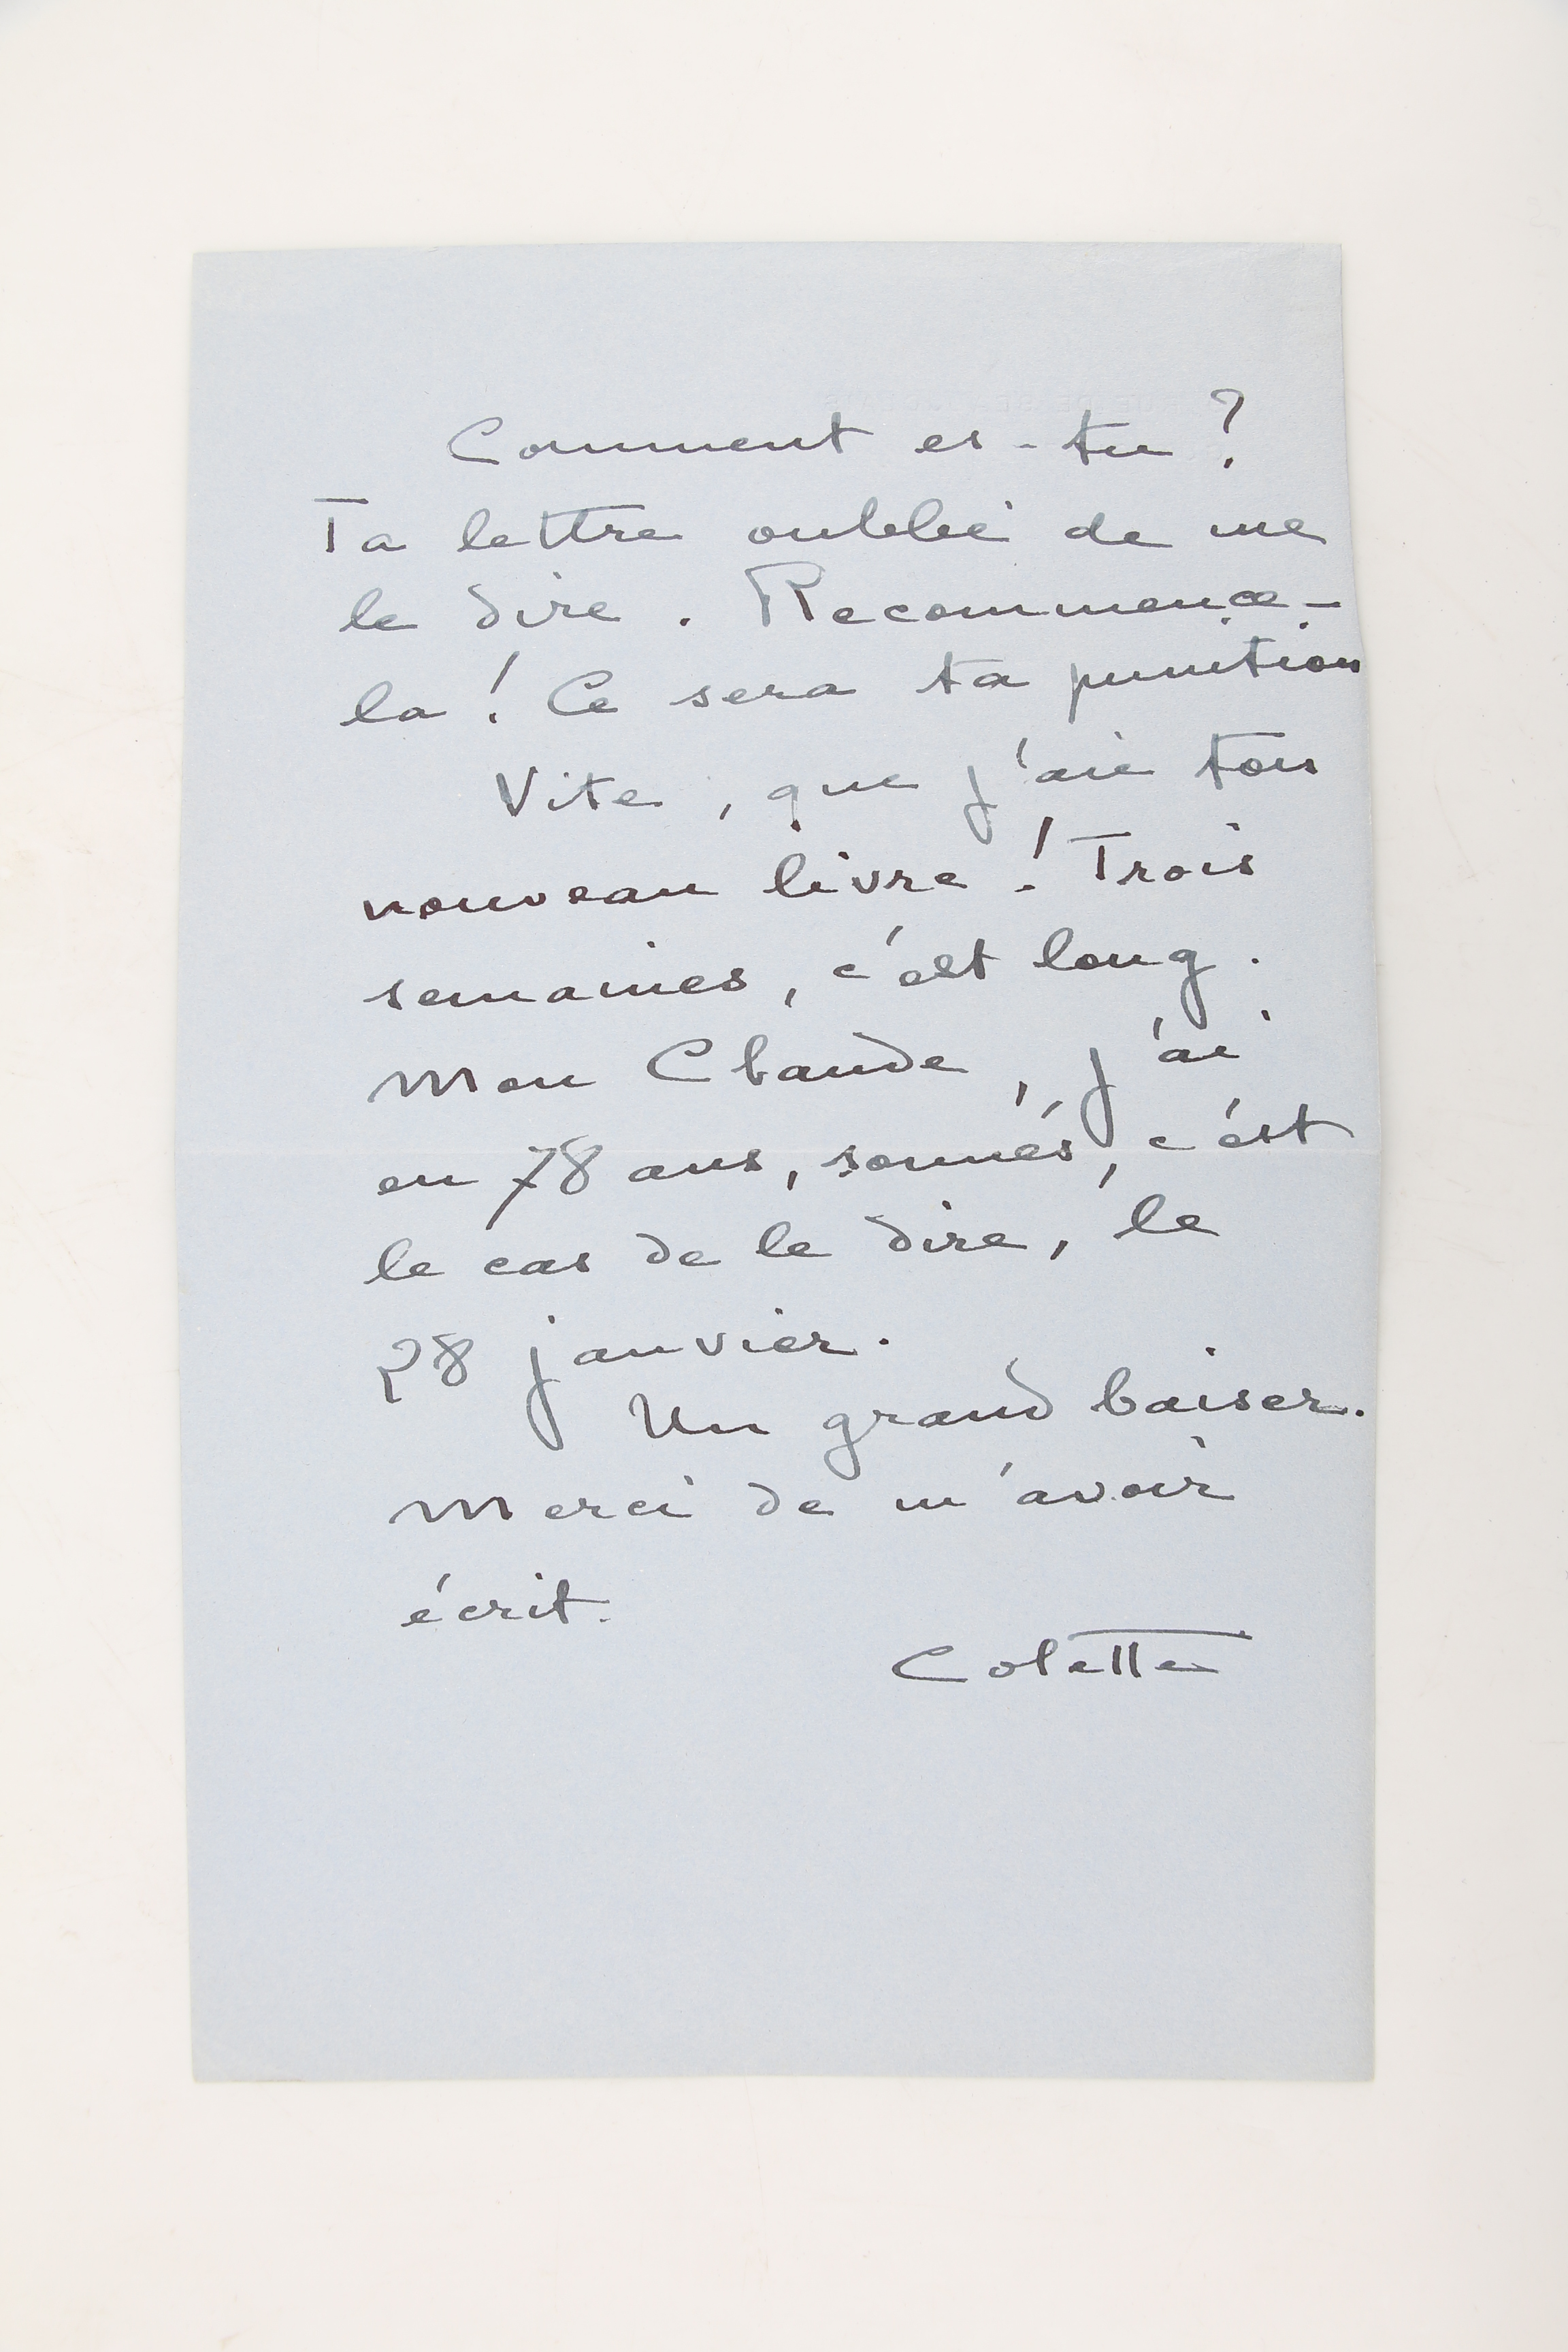 Comment es-tu ?
Ta lettre oublie de me
le dire. Recommence-
la ! Ce sera ta punition
Vite, que j'aie ton
nouveau livre ! Trois
semaines, c'est long.
Mon Claude, j'ai
eu 78 ans, sonnés, c'est
le cas de le dire, le
28 janvier.
Un grand baiser.
Merci de m'avoir
écrit.
Colette